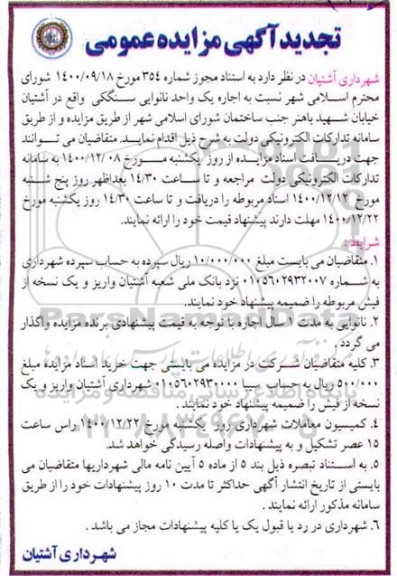 تجدید آگهی مزایده عمومی
شهرداری آشتیان در نظر دارد به استناد مجوز شماره ۳۵۴ مورخ ۱۴۰۰/۰۹/۱۸ شورای
محترم اسلامی شهر نسبت به اجاره یک واحد نانوایی سنگکی واقع در آشتیان
خیابان شهید باهنر جنب ساختمان شورای اسلامی شهر از طریق مزایده و از طریق
سامانه تدارکات الکترونیکی دولت به شرح ذیل اقدام نمایند. متقاضیان می توانند
جهت دریافت اسناد مزایده از روز یکشنبه مورخ ۱۴۰۰/۱۲/۰۸ به سامانه
تدارکات الکترونیکی دولت مراجعه و تا ساعت ۱۴/۳۰ بعداظهر روز پنج شنبه
مورخ ۱۴۰۰/۱۲/۱۲ اسناد مربوطه را دریافت و تا ساعت ۱۴/۳۰ روز یکشنبه مورخ
۱۴۰۰/۱۲/۲۲ مهلت دارند پیشنهاد قیمت خود را ارائه نمایند.
شرایط:
۱. متقاضیان می بایست مبلغ ۱۰/۰۰۰/۰۰۰ ریال سپرده به حساب سپرده شهرداری
به شماره ۰۱۰۵۶۰۲۹۳۲۰۰۷ نزد بانک ملی شعبه آشتیان واریز و یک نسخه از
فیش مربوطه را ضمیمه پیشنهاد خود نمایند.
۲. نانوایی به مدت ۱ سال اجاره با توجه به قیمت پیشنهادی برنده مزایده واگذار
می گردد.
۳. کلیه متقاضیان شرکت در مزایده می بایستی جهت خرید اسناد مزایده مبلغ
۵۰۰/۰۰۰ ریال به حساب سیبا ۰۱۰۵۶۰۲۹۳۰۰۰۰ شهرداری آشتیان واریز و یک
نسخه از فیش را ضمیمه پیشنهاد خود نمائند.
۴. کمیسیون معاملات شهرداری روز یکشنبه مورخ ۱۴۰۰/۱۲/۲۲ راس ساعت
۱۵ عصر تشکیل و به پیشنهادات واصله رسیدگی خواهد شد.
۵. به استناد تبصره ذیل بند ۵ از ماده ۵ آیین نامه مالی شهرداریها متقاضیان می
بایستی از تاریخ انتشار آگهی حداکثر تا مدت ۱۰ روز پیشنهادات خود را از طریق
سامانه مذکور ارائه نمایند.
۶. شهرداری در رد یا قبول یک یا کلیه پیشنهادات مجاز می باشد.
شهرداری آشتیان
ParsNamadData